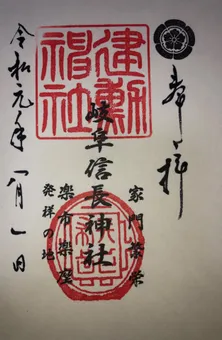 奉拝
建勲神社
岐阜信長神社
家門繁栄
楽市楽座
発祥の地
令和元年八月一日